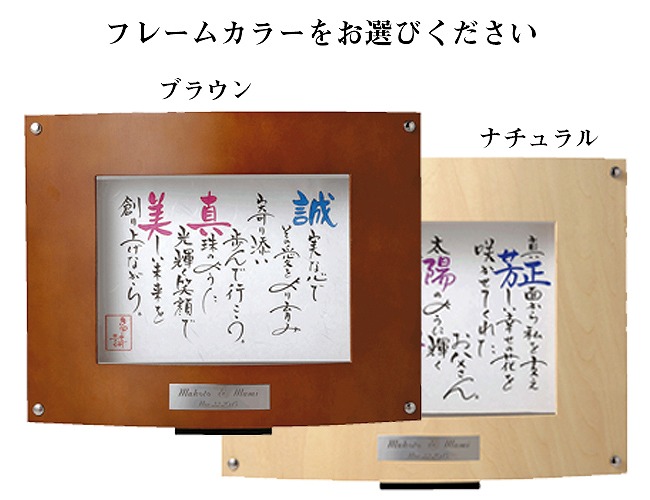 フレームカラーをお選びください
ブラウン
ナチュラル
誠実な心で
その愛をより育み
寄り添い
歩んで行こう。
真珠のように
光輝く笑顔で
美しい未来を
創り上げながら。
真正面から私を支え
芳しい幸せの花を
咲かせてくれた
お父さん。
太陽のように輝く
Makoto & Mami
Makoto & Mami